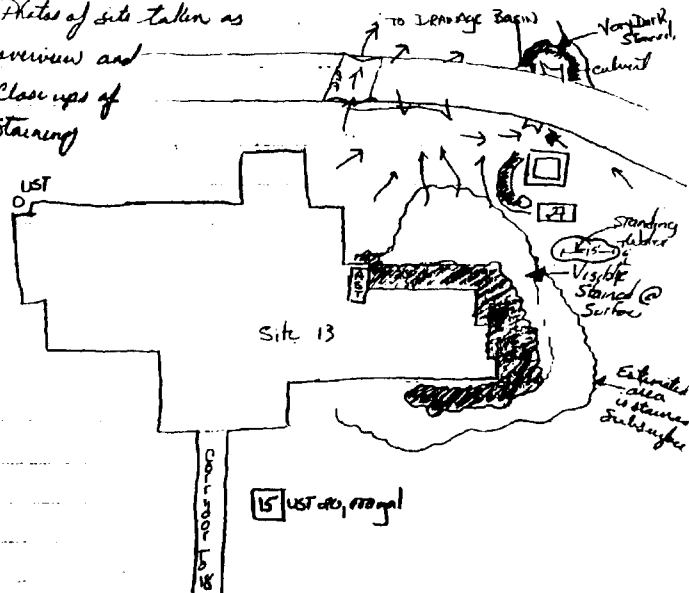 Photos of site taken as
overview and
Close ups of
staining
TO DRANAGE BASIN
Very Dark
Stained
culvert
UST
AST
27
Standing
Water
15'
Visible
Stained @
Surface
Site 13
Estimated
area
is stained
Subsurface
15 UST 20,000gal
Corridor To 18